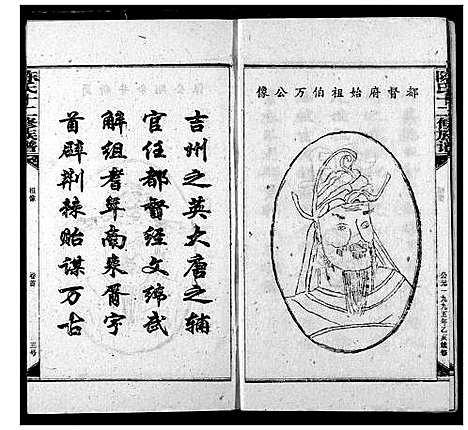 陈氏十二修族谱
都督府始祖伯万公像
公元一九九五年乙亥续修
吉州之英大唐之辅
官任都督经文纬武
解组耆年南来胥宇
首辟荆棘贻谋万古
陈氏十二修族谱
祖像
卷首
三号